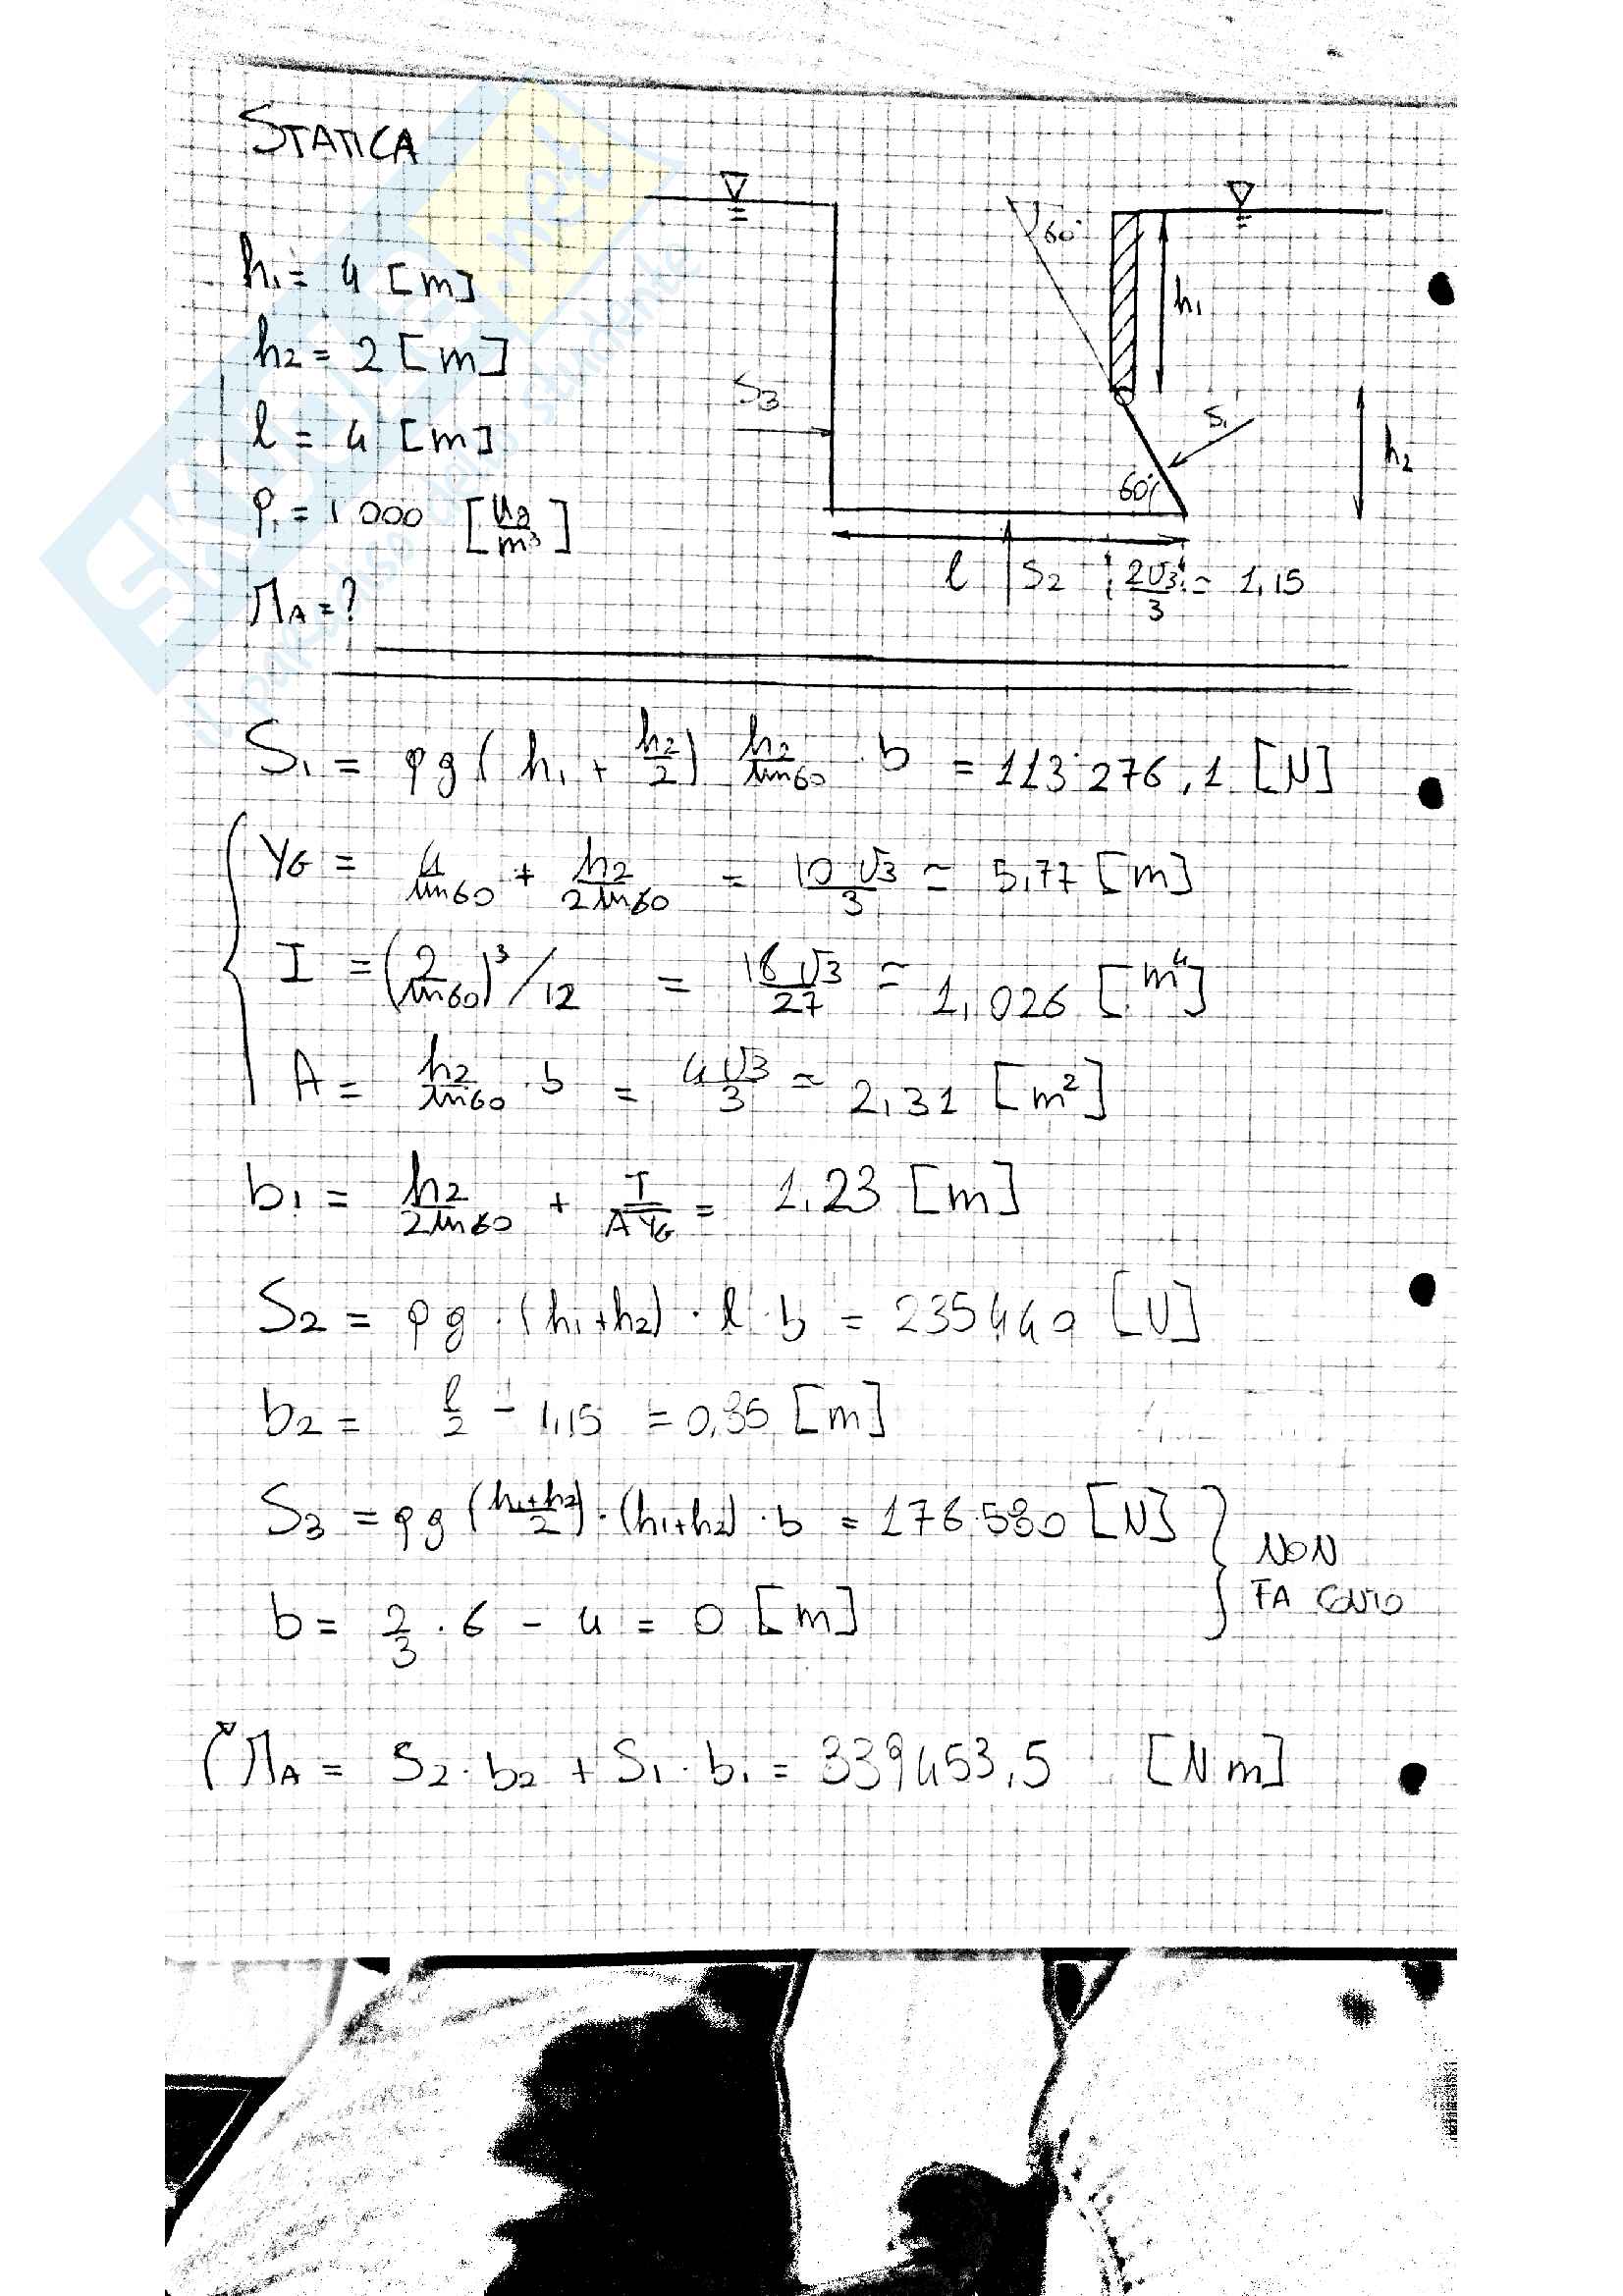 STATICA
h₁ = 4 [m]
h₂ = 2 [m]
l = 4 [m]
ρ₁ = 1000 [kg/m³]
M_A = ?
60°
h₁
S₃
S₁
h₂
60°
l
S₂
2√3/3 ≃ 1,15
S₁ = ρg(h₁ + h₂/2) h₂/sin60 · b = 113·276,1 [N]
Y_G = 4/sin60 + h₂/2sin60 = 10√3/3 ≃ 5,77 [m]
I = (2/sin60)³/12 = 16√3/27 ≃ 1,026 [m⁴]
A = h₂/sin60 · b = 4√3/3 ≃ 2,31 [m²]
b₁ = h₂/2sin60 + I/AY_G = 1,23 [m]
S₂ = ρg·(h₁+h₂)·l·b = 235440 [N]
b₂ = l/2 - 1,15 = 0,85 [m]
S₃ = ρg(h₁+h₂/2)·(h₁+h₂)·b = 176·580 [N]
NON
FA CONTO
b = 2/3·6 - 4 = 0 [m]
M_A = S₂·b₂ + S₁·b₁ = 339453,5 [Nm]
SKUOLA.net